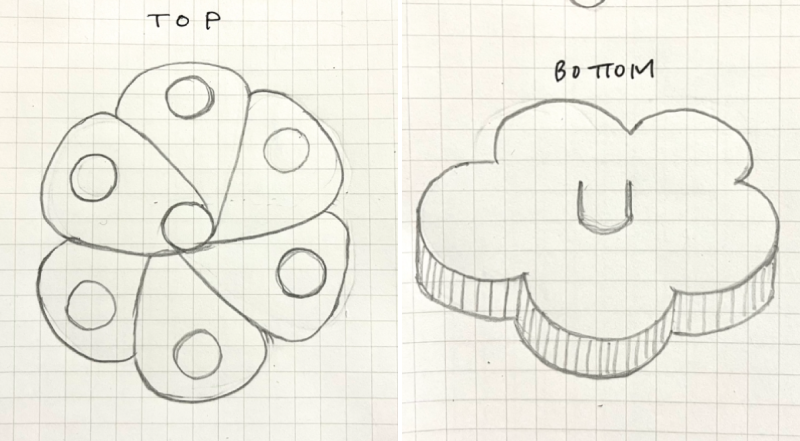 TOP
BOTTOM